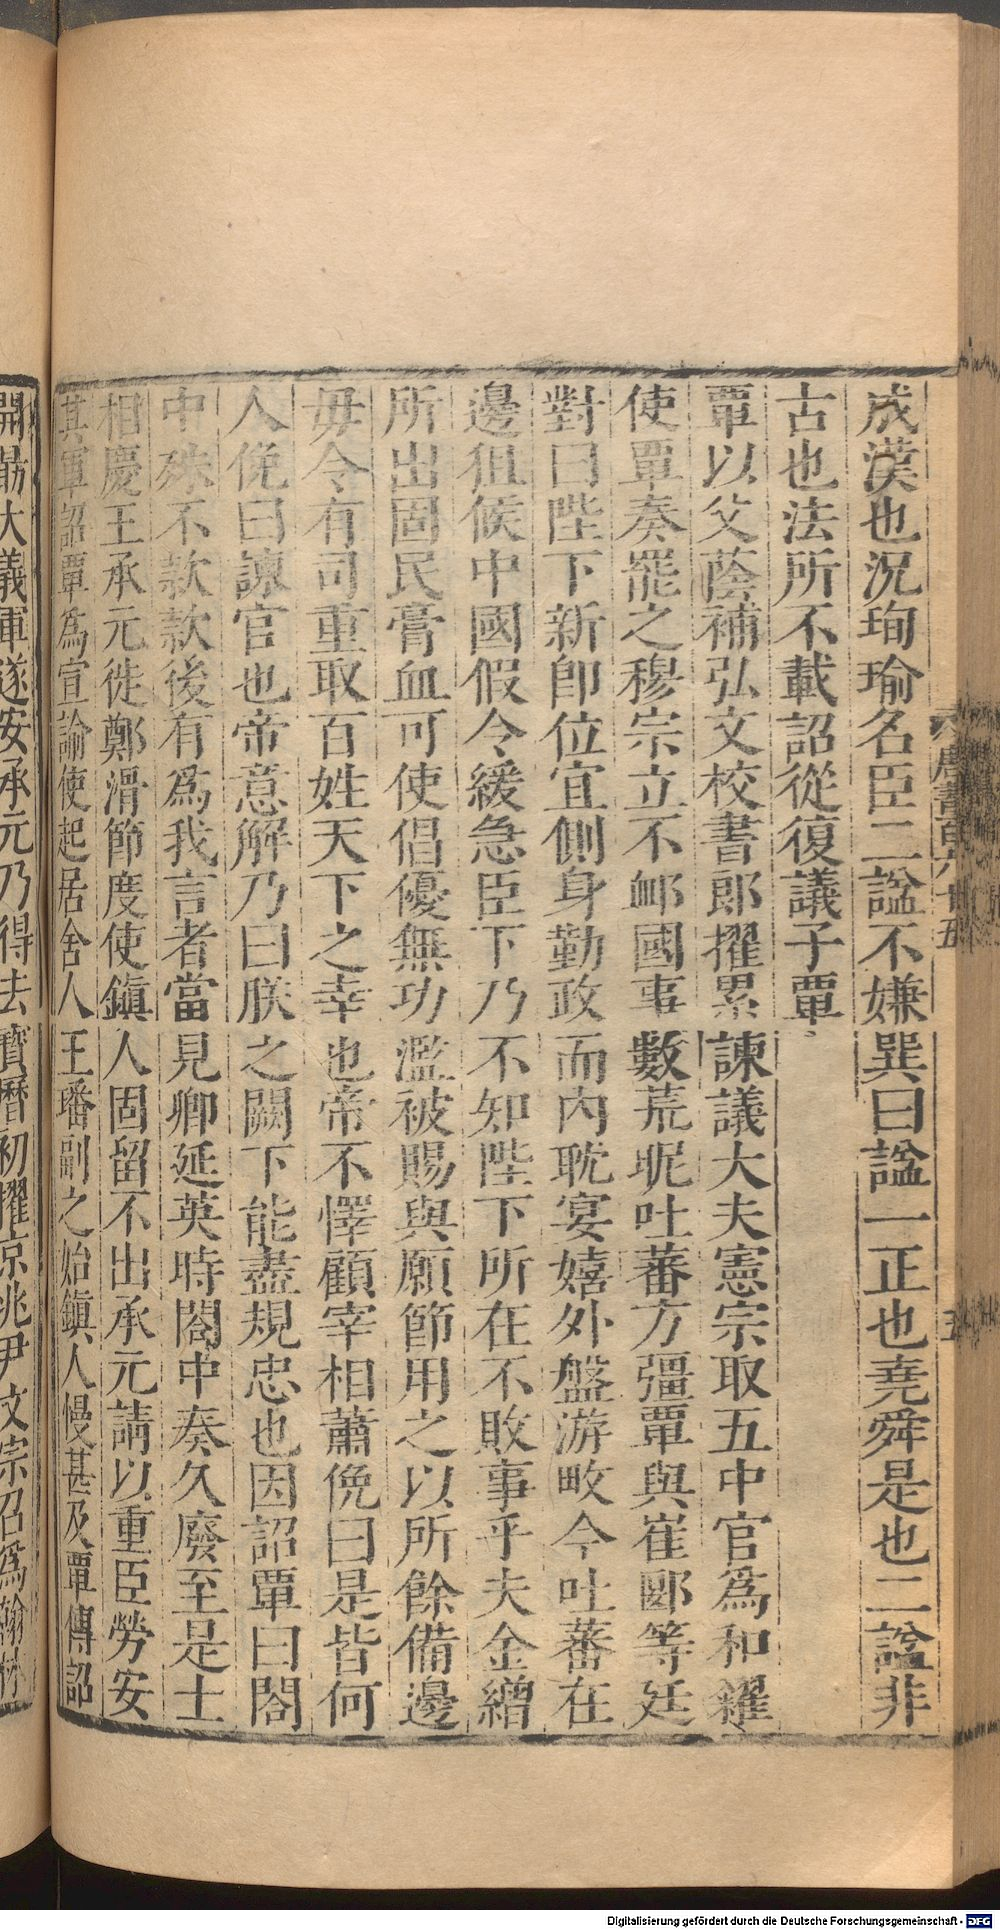 成漢也況珣瑜名臣二諡不嫌巽曰諡一正也堯舜是也二諡非
古也法所不載詔從復議子覃
覃以父蔭補弘文校書郎擢累諫議大夫憲宗取五中官爲和糴
使覃奏罷之穆宗立不䘏國事數荒昵吐蕃方彊覃與崔郾等廷
對曰陛下新卽位宜側身勤政而內耽宴嬉外盤游畋今吐蕃在
邊狙候中國假令緩急臣下乃不知陛下所在不敗事乎夫金繒
所出固民膏血可使倡優無功濫被賜與願節用之以所餘備邊
毋令有司重取百姓天下之幸也帝不懌顧宰相蕭俛曰是皆何
人俛曰諫官也帝意解乃曰朕之闕下能盡規忠也因詔覃曰閤
中殊不款款後有爲我言者當見卿延英時閤中奏久廢至是士
相慶王承元徙鄭滑節度使鎮人固留不出承元請以重臣勞安
其軍詔覃爲宣諭使起居舍人王璠副之始鎮人慢甚及覃傳詔
開勗大義軍遂安承元乃得去寶曆初擢京兆尹文宗召爲翰林
唐書百六十五
五
Digitalisierung gefördert durch die Deutsche Forschungsgemeinschaft - DFG